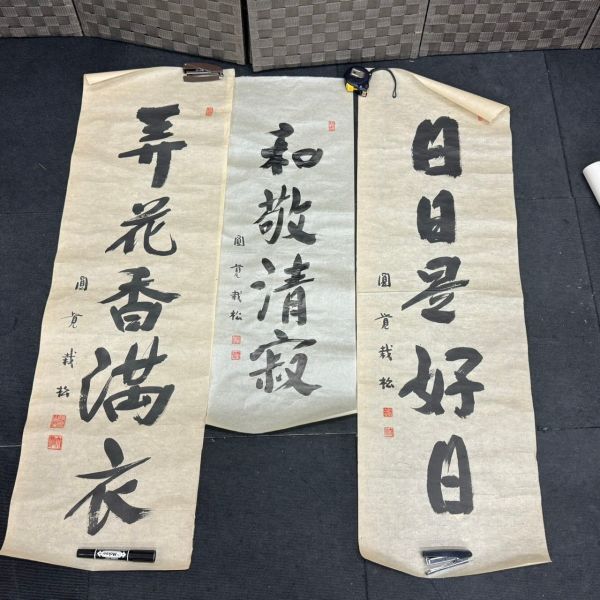 日日是好日
圓覚栽松
和敬清寂
圓覚栽松
弄花香満衣
圓覚栽松